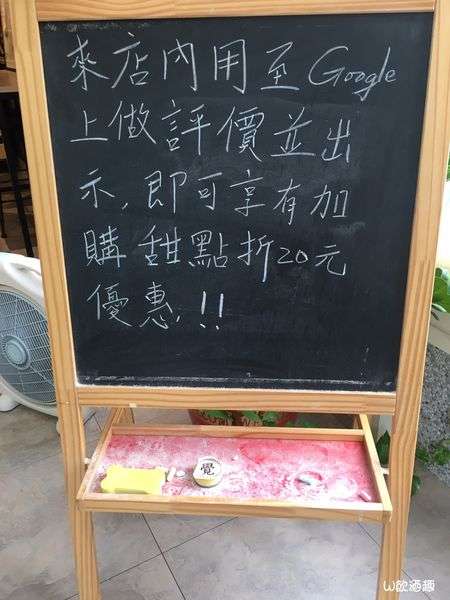 來店內用至Google
上做評價並出
示,即可享有加
購甜點折20元
優惠,!!
覺
W飲酒趣